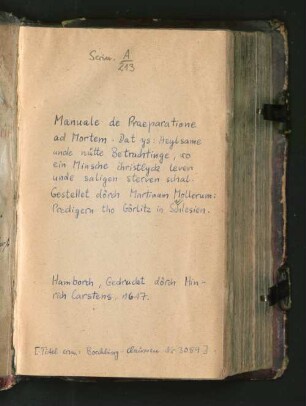 Scrin. A/213
Manuale de Praeparatione
ad Mortem. Dat ys: Heylsame
unde nütte Betrachtinge, wo
ein Minsche Christlyck leven
unde saligen sterven schal.
Gestellet dörch Martinum Mollerum:
Predigern tho Görlitz in Schlesien.
Hamborch, Gedrucket dörch Hin-
rich Carstens, 1617.
[Titel erg.: Borchling-
Nr 3089]